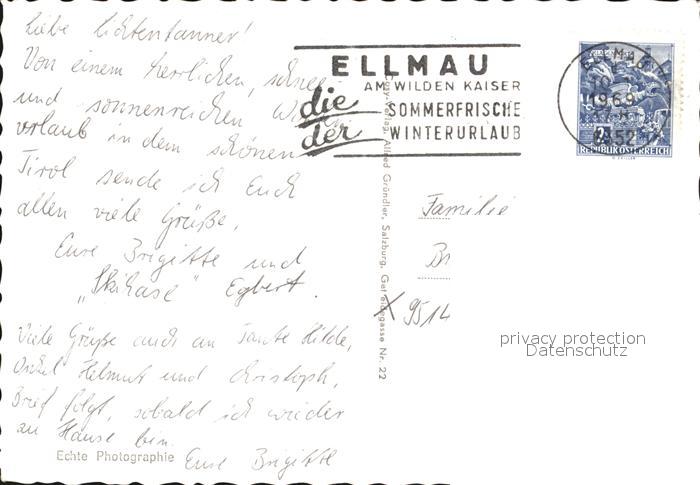 Liebe Lichtentanner!
Von einem herrlichen, schnee-
und sonnenreichen
urlaub in dem schönen
Tirol sende ich Euch
allen viele Grüße,
Eure Brigitte und
„Skihase“ Egbert.
Viele Grüße auch an Tante Hilde,
Onkel Helmut und Christoph,
Brief folgt, sobald ich wieder
zu Hause bin.
Eure Brigitte
Echte Photographie
ELLMAU
AM WILDEN KAISER
die SOMMERFRISCHE
der WINTERURLAUB
1969
REPUBLIK ÖSTERREICH
Cosy-Verlag, Alfred Gründler, Salzburg, Getreidegasse Nr. 22
Familie
Br
X 9514
privacy protection
Datenschutz